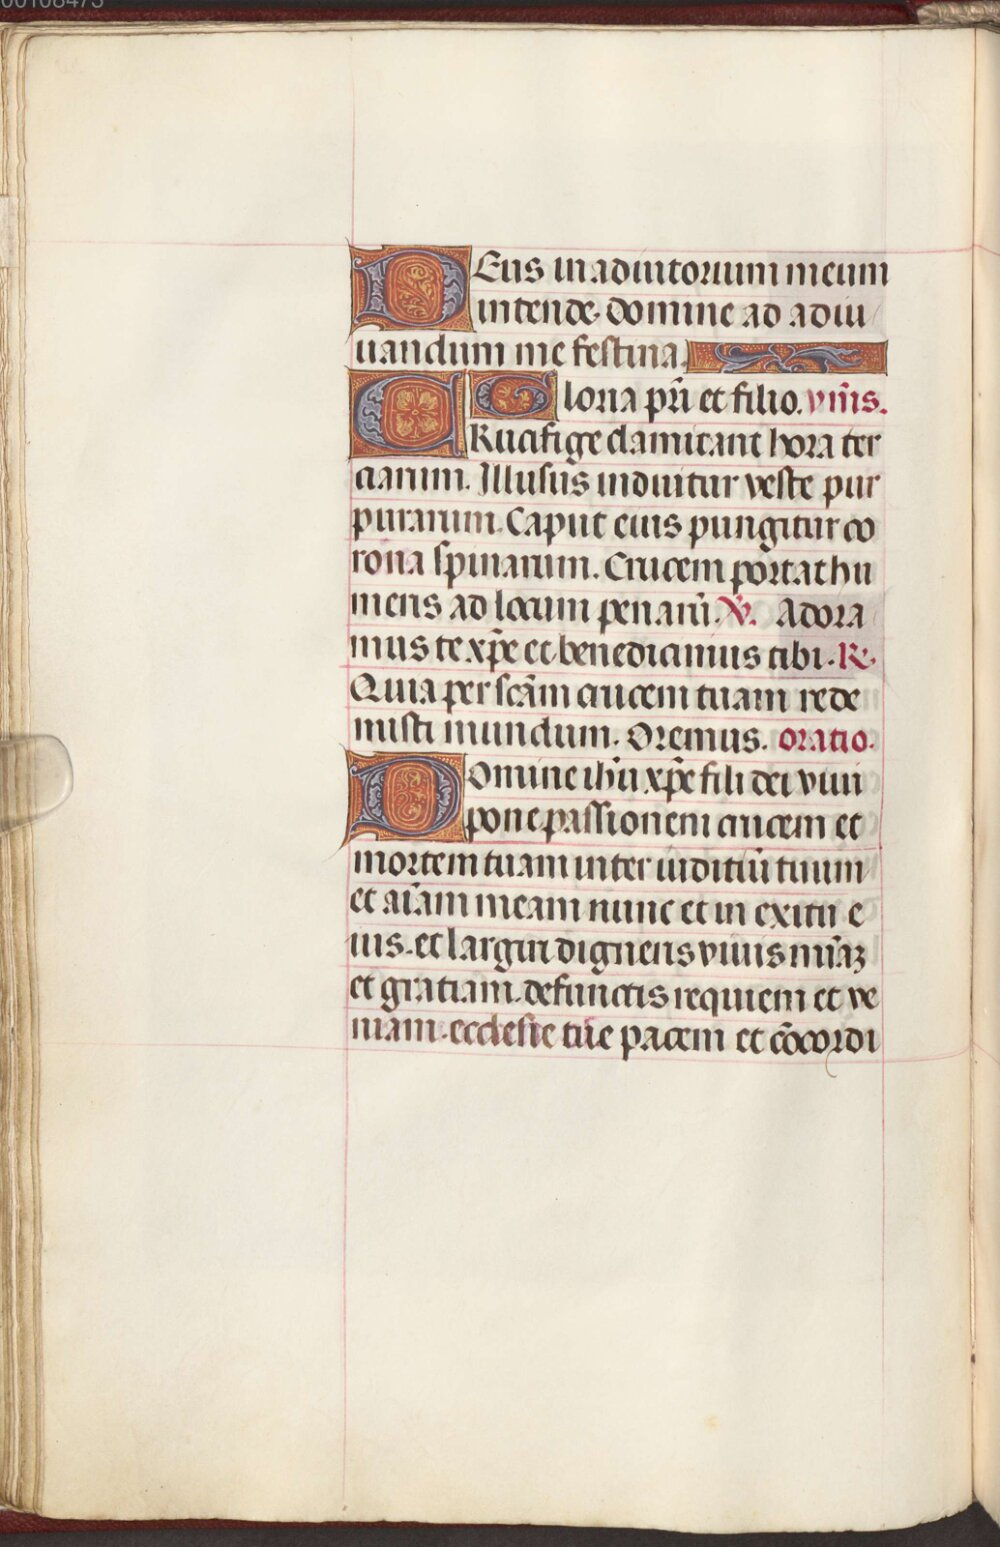 DEus in adiutorium meum
intende. domine ad adiu
uandum me festina.
Gloria pr̄i et filio. ym̄s.
CRucifige clamitant hora ter
ciarum. Illusus induitur veste pur
purarum. Caput eius pungitur co
rona spinarum. Crucem portat hu
meris ad locum penarū. ℣. Adora
mus te xp̄e et benedicimus tibi. ℟.
Quia per sc̄am crucem tuam rede
misti mundum. Oremus. oratio.
Domine ihū xp̄e fili dei viui
pone passionem crucem et
mortem tuam inter iuditiū tuum
et aīam meam nunc et in exitu e
ius. et largiri digneris viuis mīaꝫ
et gratiam. defunctis requiem et ve
niam. ecclesie tue pacem et cōcordi